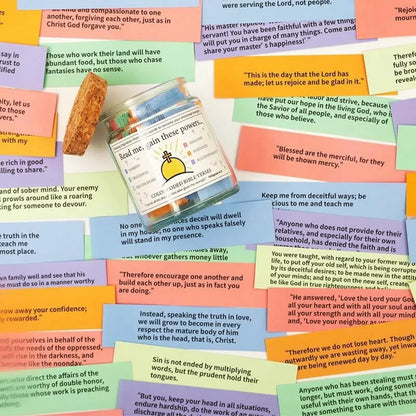 be kind and compassionate to one
another, forgiving each other, just as in
Christ God forgave you."
were serving the Lord, not people.
"His master replied,
servant! You have been faithful with a few things
will put you in charge of many things. Come and
share your master's happiness!'"
"Rejoice
mourn
say in
trust to
ified
hose who work their land will have
abundant food, but those who chase
fantasies have no sense.
"This is the day that the Lord has
made; let us rejoice and be glad in it."
Therefore
fully
so the
labor and strive, because
have put our hope in the living God, who is
the Savior of all people, and especially of
those who believe.
ty, let us
to those
vers."
strengthen
with my
be rich in good
lling to share.
Read me, gain these powers...
COLOR CODED BIBLE VERSES
"Blessed are the merciful, for they
will be shown mercy."
of sober mind. Your enemy
prowls around like a roaring
king for someone to devour.
Keep me from deceitful ways; be
gracious to me and teach me
truth in the
teach me
most place.
No one who practices deceit will dwell
in my house; no one who speaks falsely
will stand in my presence.
whoever gathers money little
"Anyone who does not provide for their
relatives, and especially for their own
household, has denied the faith and is
You were taught, with regard to your former way of
life, to put off your old self, which is being corrupted
by its deceitful desires; to be made new in the attitude
of your minds; and to put on the new self, created to
be like God in true righteousness and
own family well and see that his
must do so in a manner worthy
"Therefore encourage one another and
build each other up, just as in fact you
are doing."
"He answered, 'Love the Lord your God
all your heart and with all your soul
your strength and with all your mind
and, 'Love your neighbor as
row away your confidence;
rewarded."
Instead, speaking the truth in love,
we will grow to become in every
respect the mature body of him
who is the head, that is, Christ.
and yourselves in behalf of the
the needs of the oppressed,
will rise in the darkness,
become like the noonday."
"Therefore we do not lose heart. Though
outwardly we are wasting away, yet inwardly
are being renewed day by day."
ers who direct the affairs of the
are worthy of double honor,
those whose work is preaching
Sin is not ended by multiplying
words, but the prudent hold their
tongues.
"But you, keep your head in all situations,
endure hardship, do the work of an
discharge all the
Anyone who has been stealing must steal
longer, but must work, doing something
useful with their own hands, that they
something to share with those